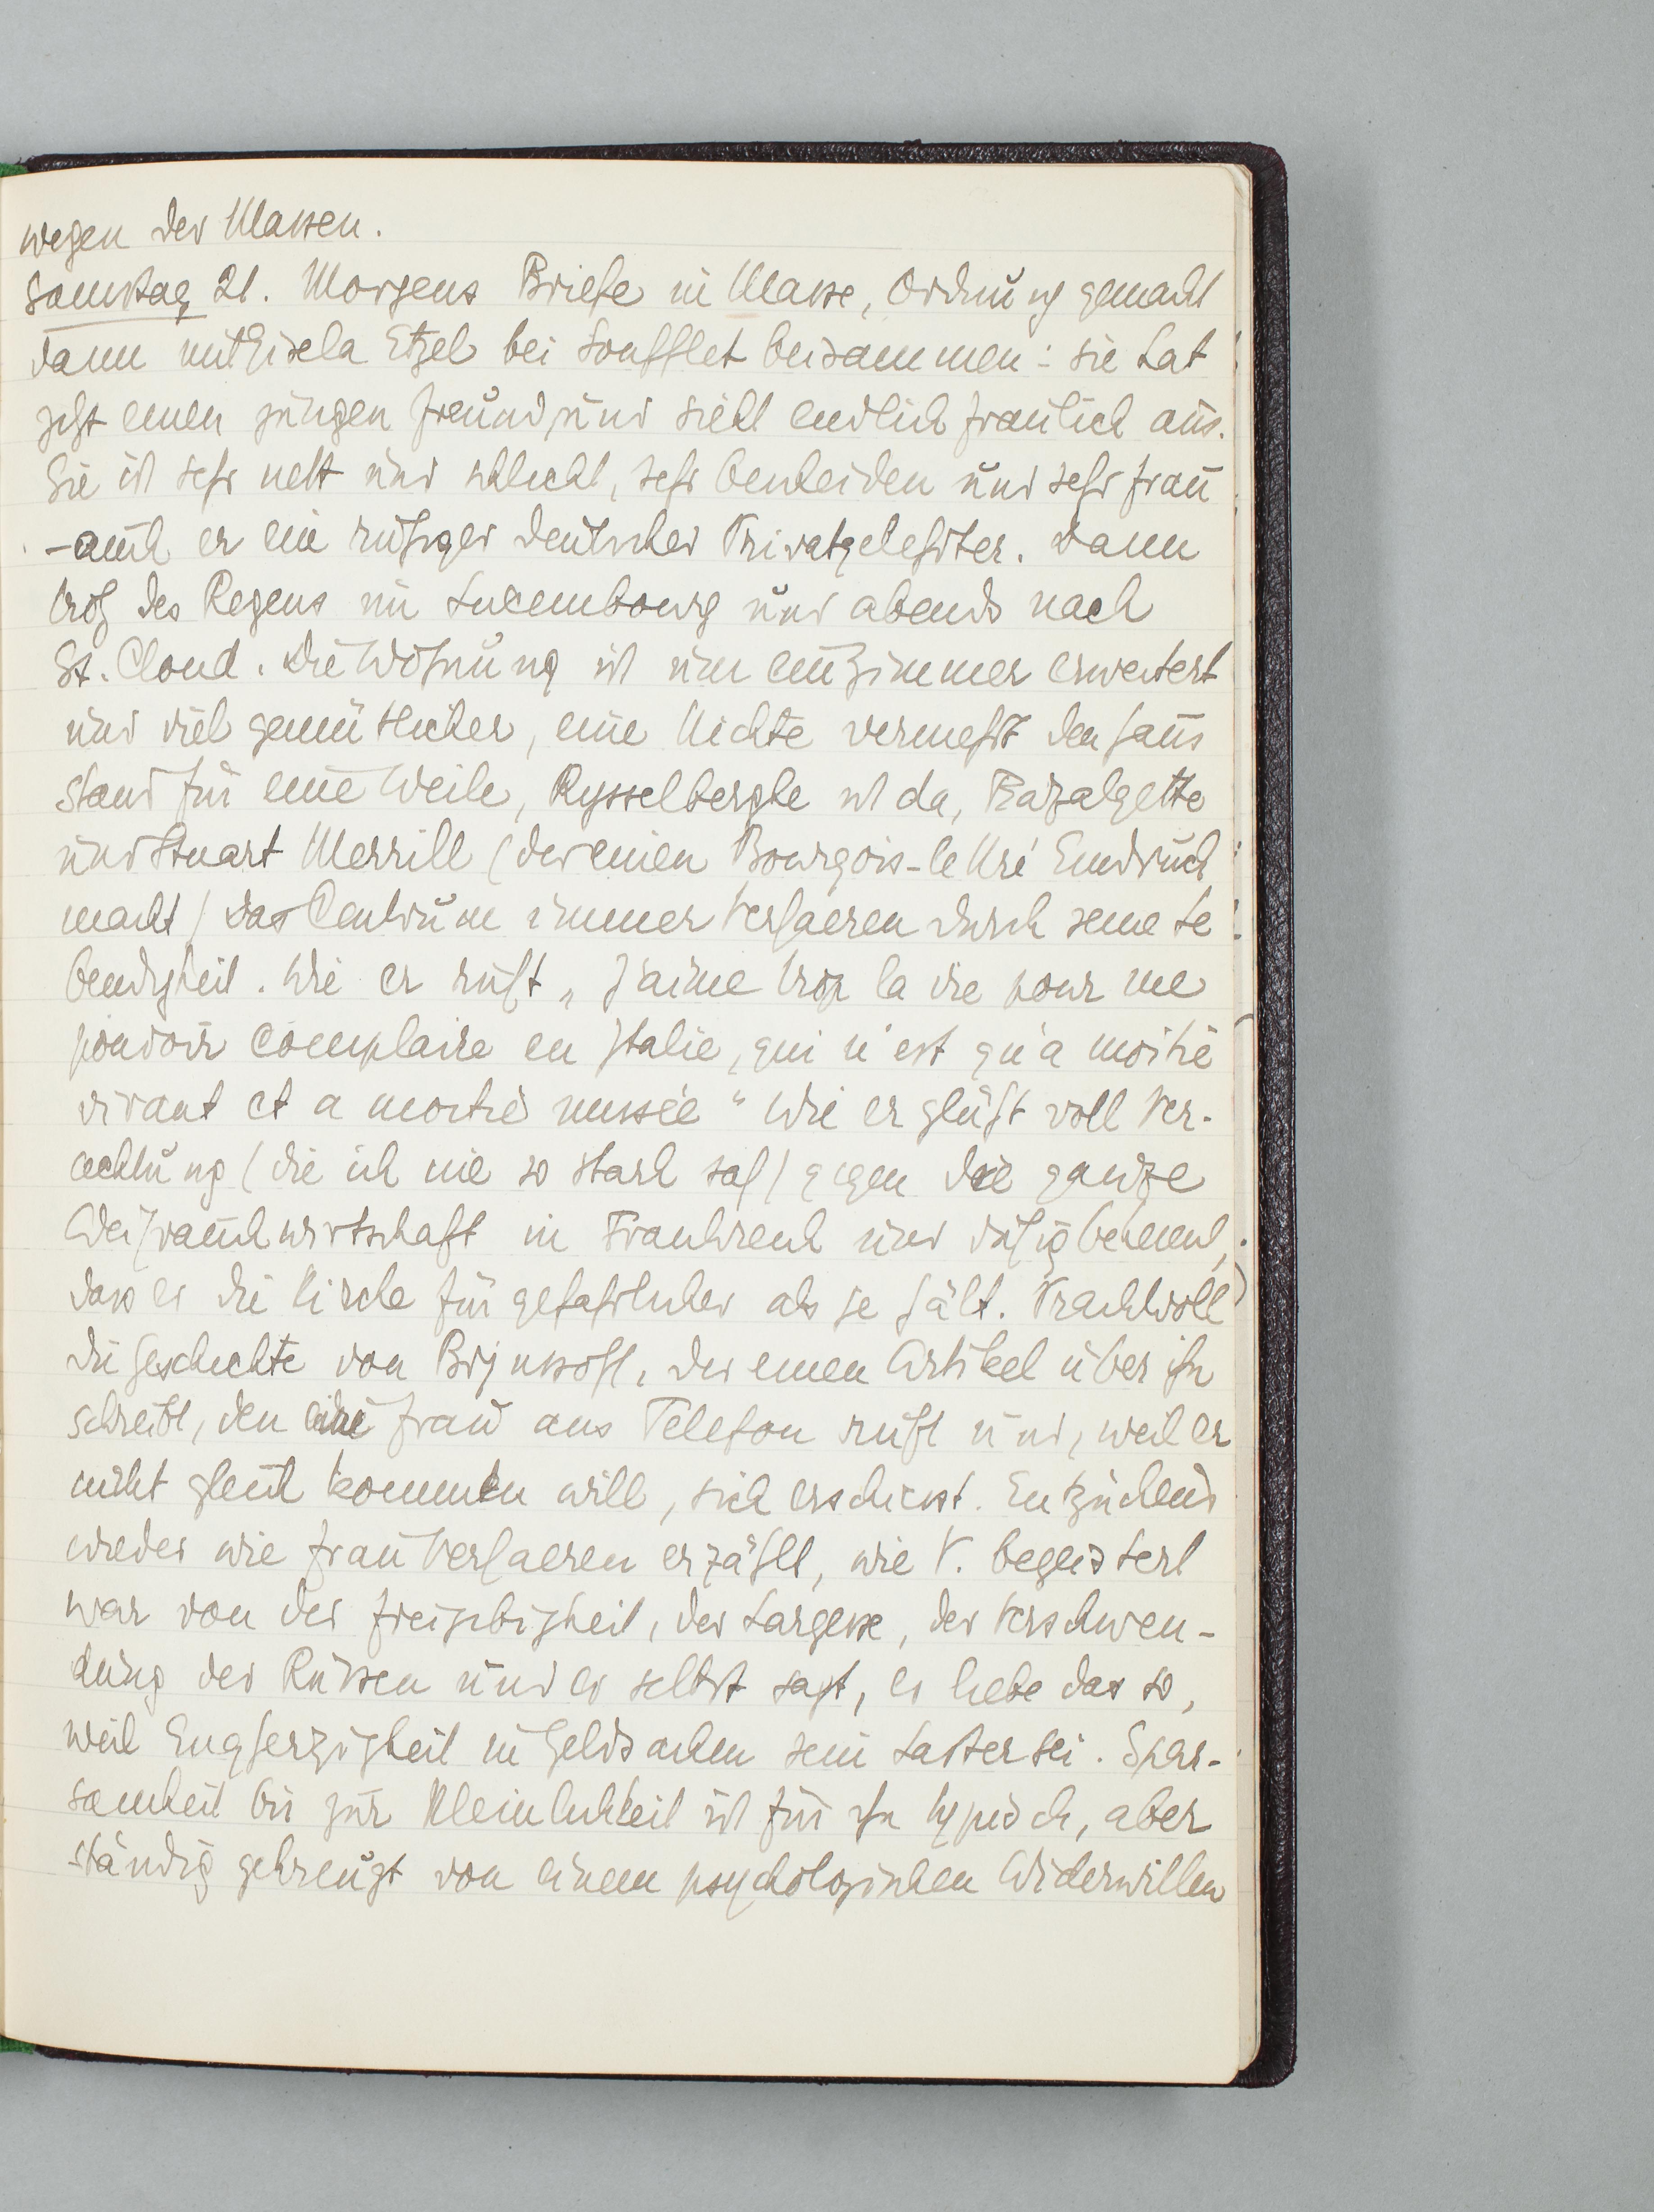 wegen der Massen.
Samstag 21. Morgens Briefe in Masse, Ordnung gemacht
dann mit Gisela Etzel bei Soufflet beisammen: sie hat
jetzt einen jungen Freund und sieht endlich fraulich aus.
Sie ist sehr nett und schlicht, sehr bescheiden und sehr frau
- auch er ein ruhiger deutscher Privatgelehrter. Dann
trotz des Regens im Luxembourg und abends nach
St. Cloud. Die Wohnung ist um ein Zimmer erweitert
und viel gemütlicher, eine Nichte vermehrt den Haus
stand für eine Weile, Rysselberghe ist da, Bazalgette
und Stuart Merrill (der einen Bourgois-lettré Eindruck
macht) das Centrum immer Verhaeren durch seine Le
bendigkeit. Wie er ruft „J'aime trop la vie pour me
pouvoir complaire en Italie, qui n'est qu'a moitié
vivant et a moitié musée" Wie er glüht voll Ver-
achtung (die ich nie so stark sah) gegen die ganze
Weihrauchwirtschaft in Frankreich und ruhig bekennt,
dass er die Kirche für gefährlicher als je hält. Prachtvoll
die Geschichte von Brjussoff, der einen Artikel über ihn
schreibt, den eine Frau ans Telefon ruft und, weil er
nicht gleich kommen will, sich erschiesst. Entzückend
wieder wie Frau Verhaeren erzählt, wie V. begeistert
war von der Freigebigkeit, der Largesse, der Verschwen-
dung der Russen und er selbst sagt, er liebe das so,
weil Engherzigkeit in Geldsachen sein Laster sei. Spar-
samkeit bis zur Kleinlichkeit ist für ihn typisch, aber
ständig gekreuzt von einem psychologischen Widerwillen